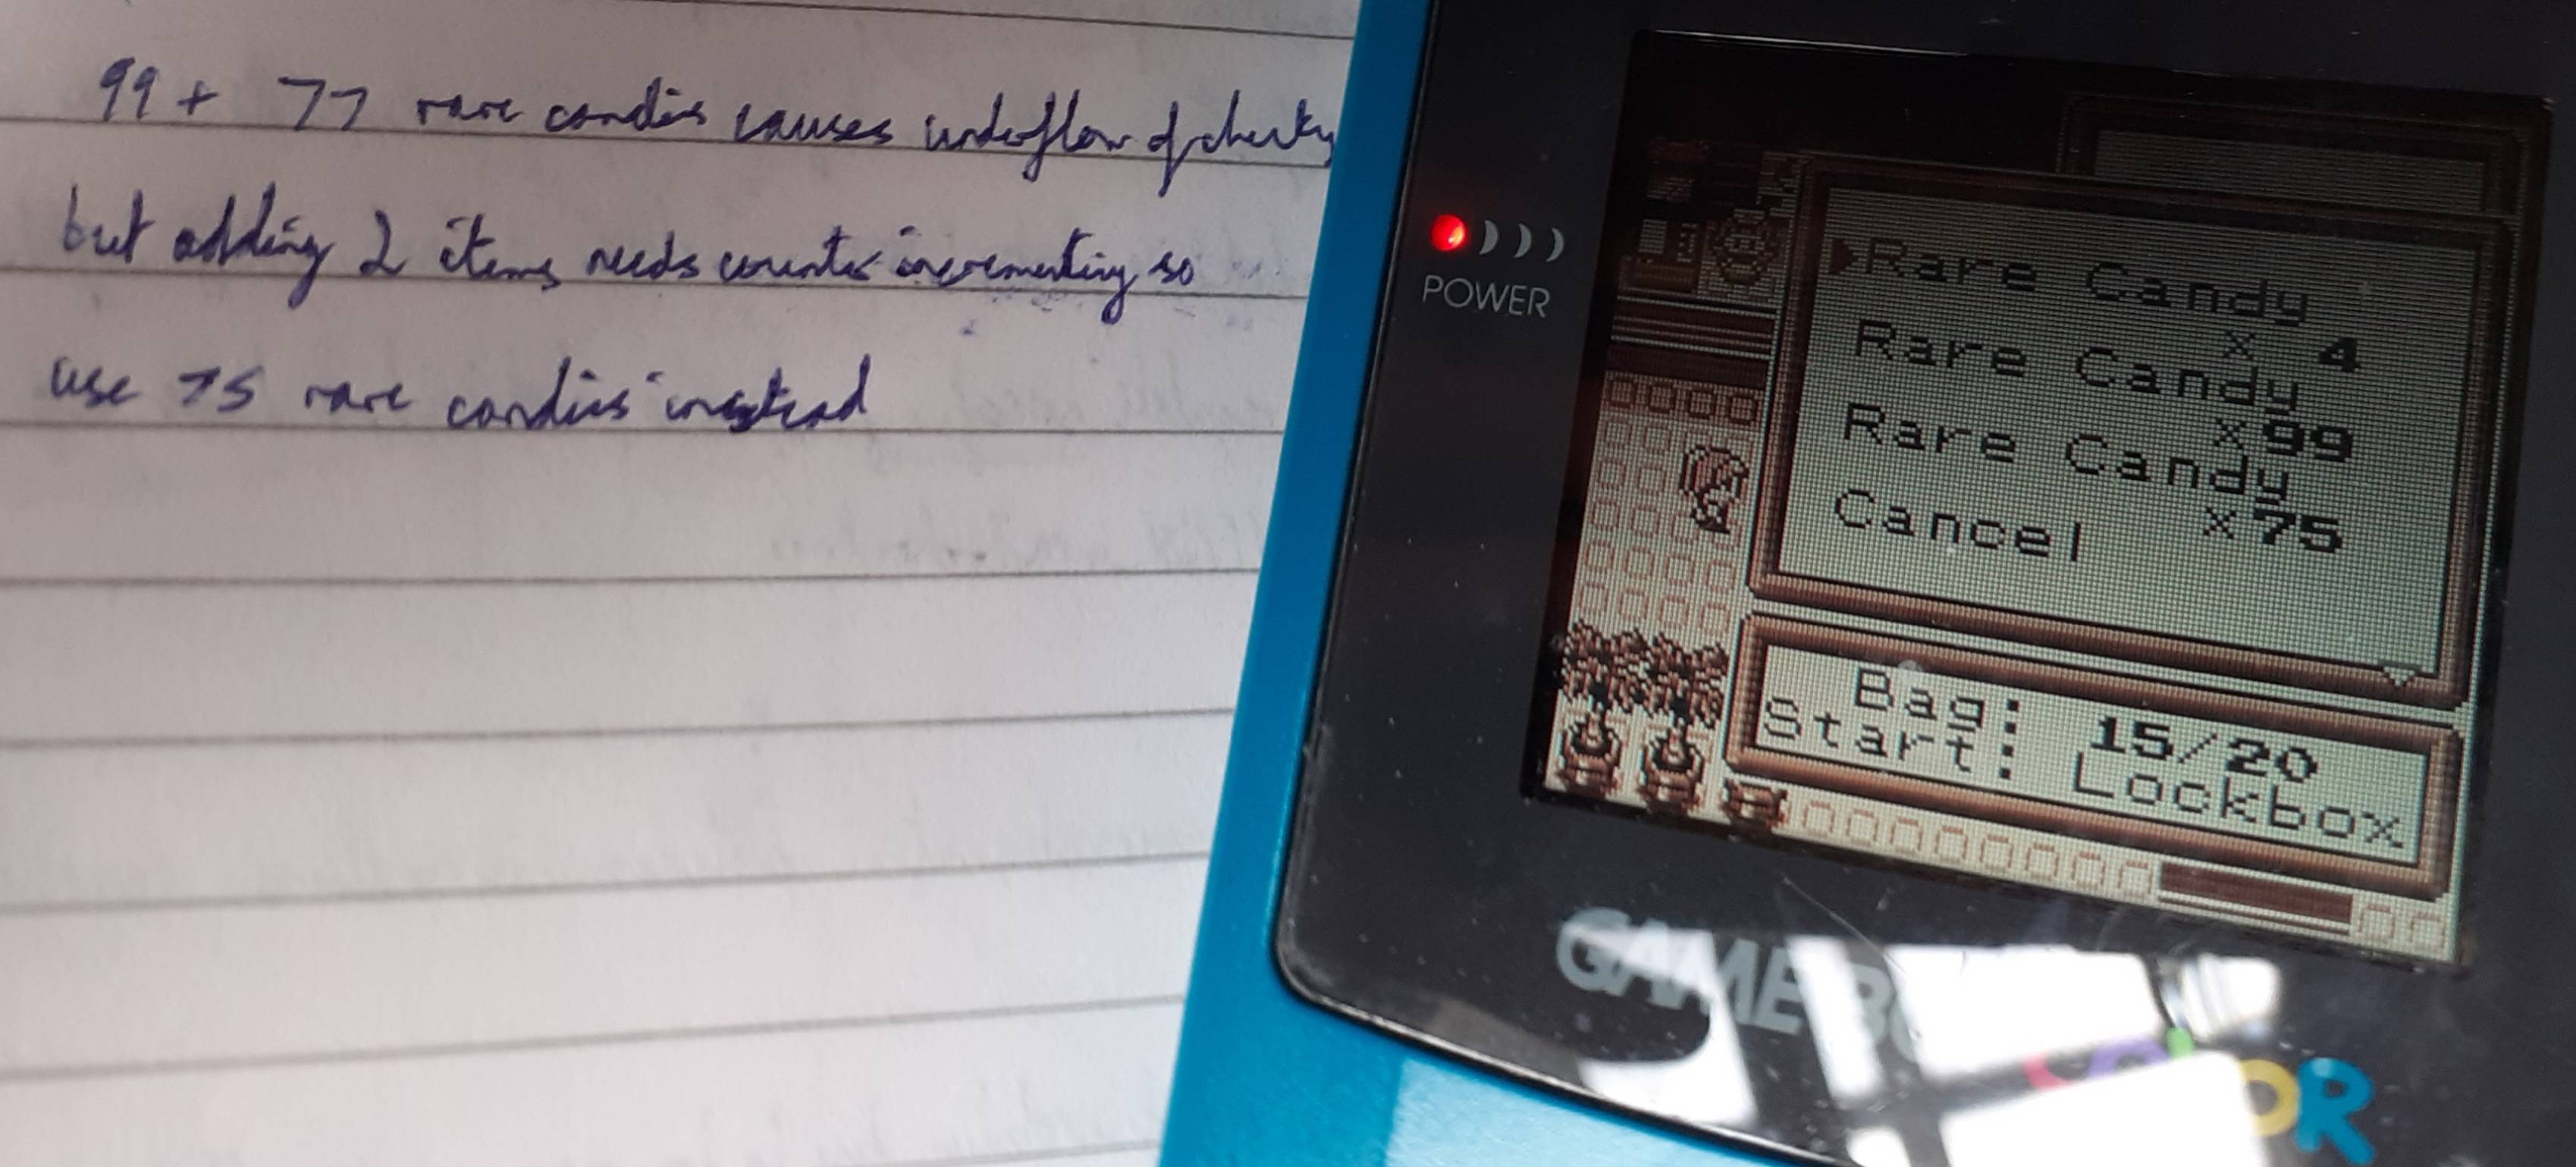 99 + 77 rare candies causes underflow of
but adding 2 items needs counter incrementing so
use 75 rare candies instead
POWER
▶Rare Candy
× 4
Rare Candy
×99
Rare Candy
×75
Cancel
Bag: 15/20
Start: Lockbox
GAME BOY
COLOR